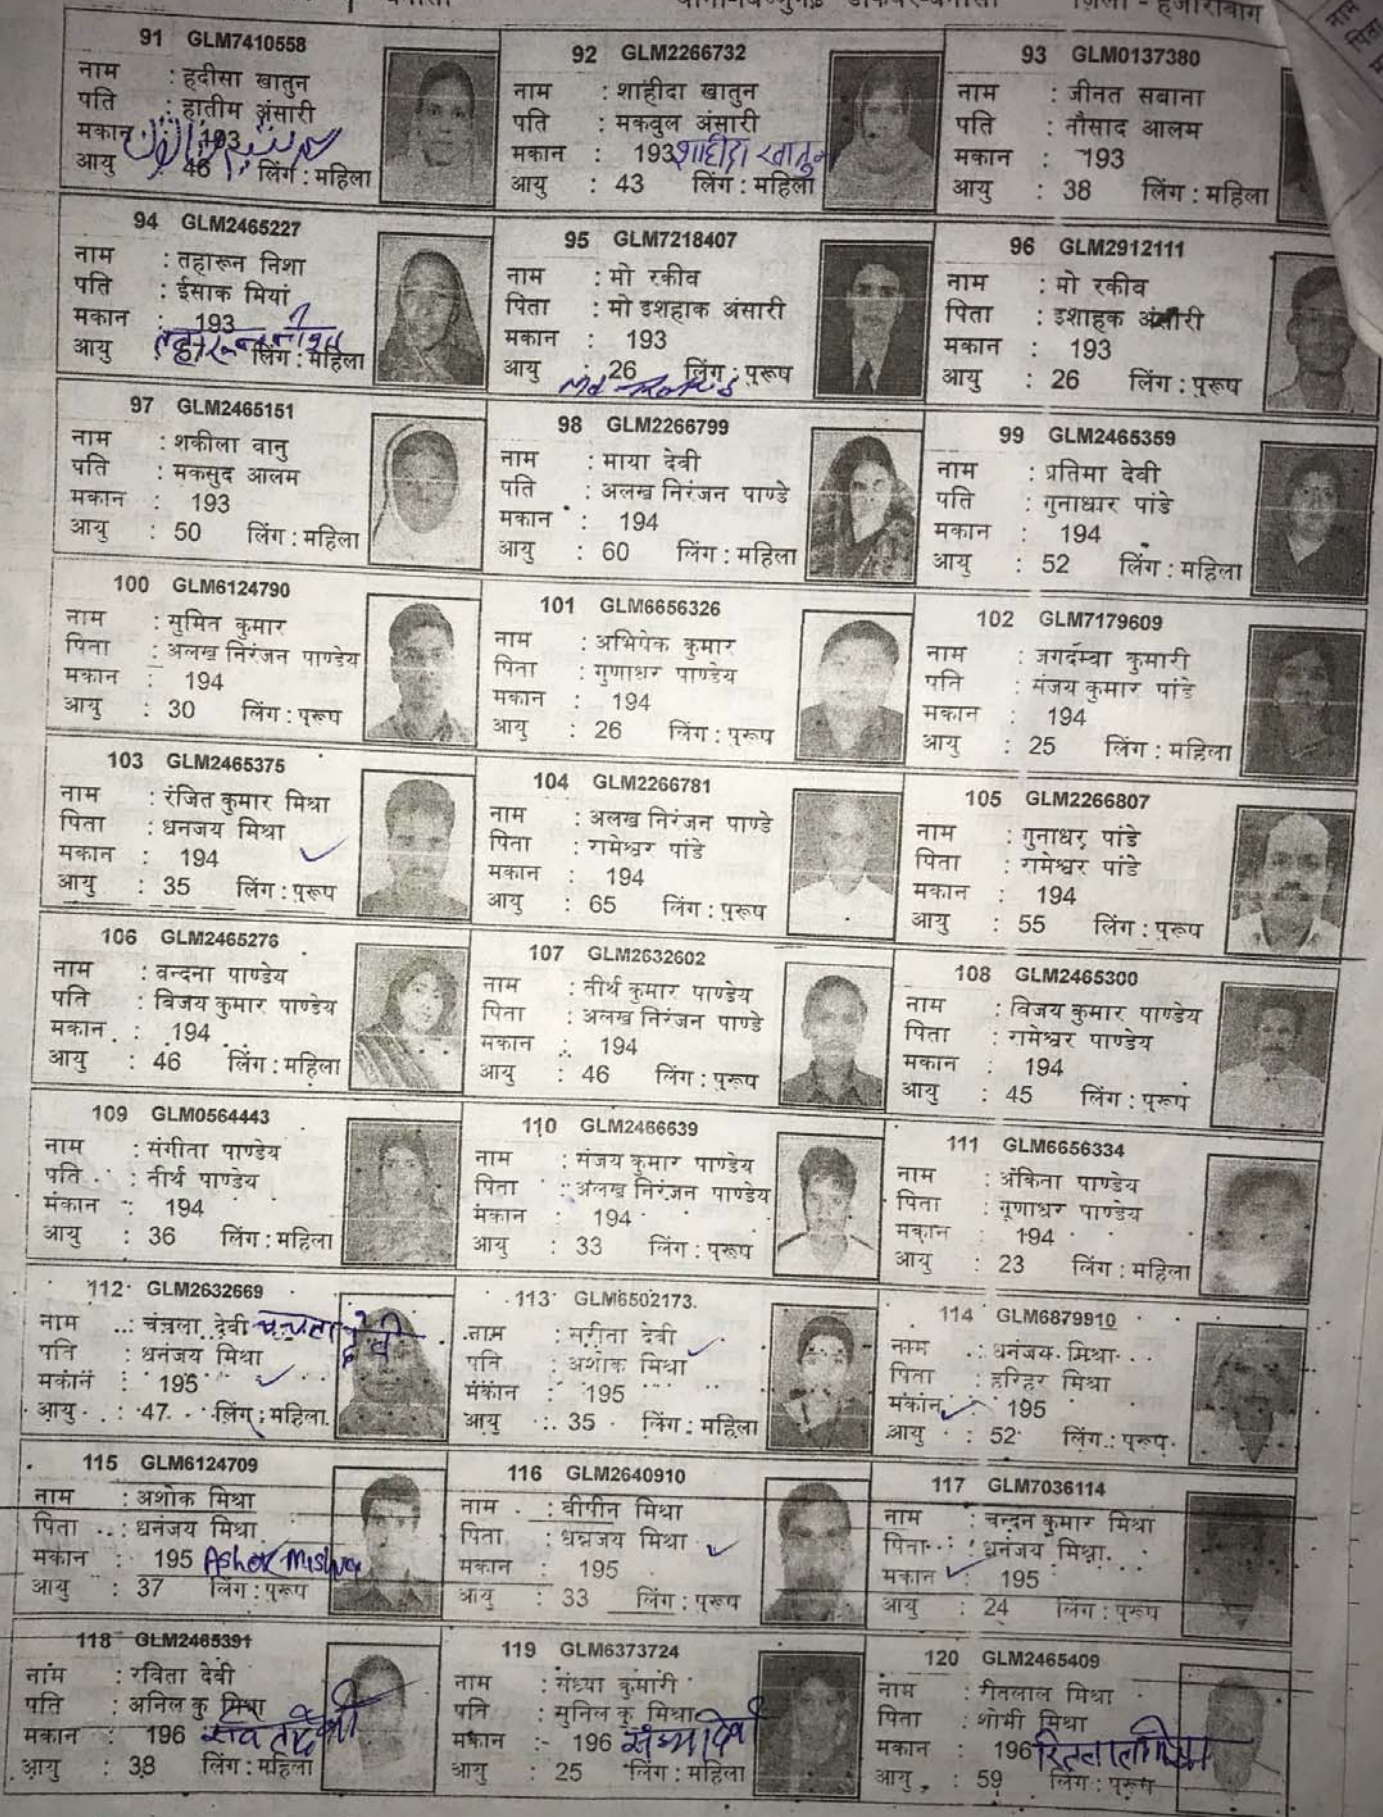 जिला - हजारीबाग
91 GLM7410558
नाम : हदीसा खातुन
पति : हातीम अंसारी
मकान 193
आयु 46 लिंग : महिला
92 GLM2266732
नाम : शाहीदा खातुन
पति : मकवुल अंसारी
मकान : 193 शाहीदा खातुन
आयु : 43 लिंग : महिला
93 GLM0137380
नाम : जीनत सबाना
पति : नौसाद आलम
मकान : 193
आयु : 38 लिंग : महिला
94 GLM2465227
नाम : तहारून निशा
पति : ईसाक मियां
मकान : 193
आयु लिंग : महिला
95 GLM7218407
नाम : मो रकीव
पिता : मो इशहाक अंसारी
मकान : 193
आयु : 26 लिंग : पुरूष
96 GLM2912111
नाम : मो रकीव
पिता : इशाहक अंसारी
मकान : 193
आयु : 26 लिंग : पुरूष
97 GLM2465151
नाम : शकीला वानु
पति : मकसुद आलम
मकान : 193
आयु : 50 लिंग : महिला
98 GLM2266799
नाम : माया देवी
पति : अलख निरंजन पाण्डे
मकान : 194
आयु : 60 लिंग : महिला
99 GLM2465359
नाम : प्रतिमा देवी
पति : गुनाधार पांडे
मकान : 194
आयु : 52 लिंग : महिला
100 GLM6124790
नाम : सुमित कुमार
पिता : अलख निरंजन पाण्डेय
मकान : 194
आयु : 30 लिंग : पुरूष
101 GLM6656326
नाम : अभिषेक कुमार
पिता : गुणाधर पाण्डेय
मकान : 194
आयु : 26 लिंग : पुरूष
102 GLM7179609
नाम : जगदम्वा कुमारी
पति : संजय कुमार पांडे
मकान : 194
आयु : 25 लिंग : महिला
103 GLM2465375
नाम : रंजित कुमार मिश्रा
पिता : धनजय मिश्रा
मकान : 194
आयु : 35 लिंग : पुरूष
104 GLM2266781
नाम : अलख निरंजन पाण्डे
पिता : रामेश्वर पांडे
मकान : 194
आयु : 65 लिंग : पुरूष
105 GLM2266807
नाम : गुनाधर पांडे
पिता : रामेश्वर पांडे
मकान : 194
आयु : 55 लिंग : पुरूष
106 GLM2465276
नाम : वन्दना पाण्डेय
पति : विजय कुमार पाण्डेय
मकान : 194
आयु : 46 लिंग : महिला
107 GLM2632602
नाम : तीर्थ कुमार पाण्डेय
पिता : अलख निरंजन पाण्डे
मकान : 194
आयु : 46 लिंग : पुरूष
108 GLM2465300
नाम : विजय कुमार पाण्डेय
पिता : रामेश्वर पाण्डेय
मकान : 194
आयु : 45 लिंग : पुरूष
109 GLM0564443
नाम : संगीता पाण्डेय
पति : तीर्थ पाण्डेय
मकान : 194
आयु : 36 लिंग : महिला
110 GLM2466639
नाम : संजय कुमार पाण्डेय
पिता : अलख निरंजन पाण्डेय
मकान : 194
आयु : 33 लिंग : पुरूष
111 GLM6656334
नाम : अंकिता पाण्डेय
पिता : गूणाधर पाण्डेय
मकान : 194
आयु : 23 लिंग : महिला
112 GLM2632669
नाम : चंचला देवी चन्चला देवी
पति : धनंजय मिश्रा
मकान : 195
आयु : 47 लिंग : महिला
113 GLM6502173
नाम : सरीता देवी
पति : अशोक मिश्रा
मकान : 195
आयु : 35 लिंग : महिला
114 GLM6879910
नाम : धनंजय मिश्रा
पिता : हरिहर मिश्रा
मकान : 195
आयु : 52 लिंग : पुरूष
115 GLM6124709
नाम : अशोक मिश्रा
पिता : धनंजय मिश्रा
मकान : 195 Ashok Mishra
आयु : 37 लिंग : पुरूष
116 GLM2640910
नाम : वीपीन मिश्रा
पिता : धन्नजय मिश्रा
मकान : 195
आयु : 33 लिंग : पुरूष
117 GLM7036114
नाम : चन्दन कुमार मिश्रा
पिता : धनंजय मिश्रा
मकान : 195
आयु : 24 लिंग : पुरूष
118 GLM2465391
नाम : रविता देवी
पति : अनिल कु मिश्रा
मकान : 196
आयु : 38 लिंग : महिला
119 GLM6373724
नाम : संध्या कुमारी
पति : सुनिल कु मिश्रा
मकान : 196 संध्या देवी
आयु : 25 लिंग : महिला
120 GLM2465409
नाम : रीतलाल मिश्रा
पिता : शोभी मिश्रा
मकान : 196
आयु : 59 लिंग : पुरूष